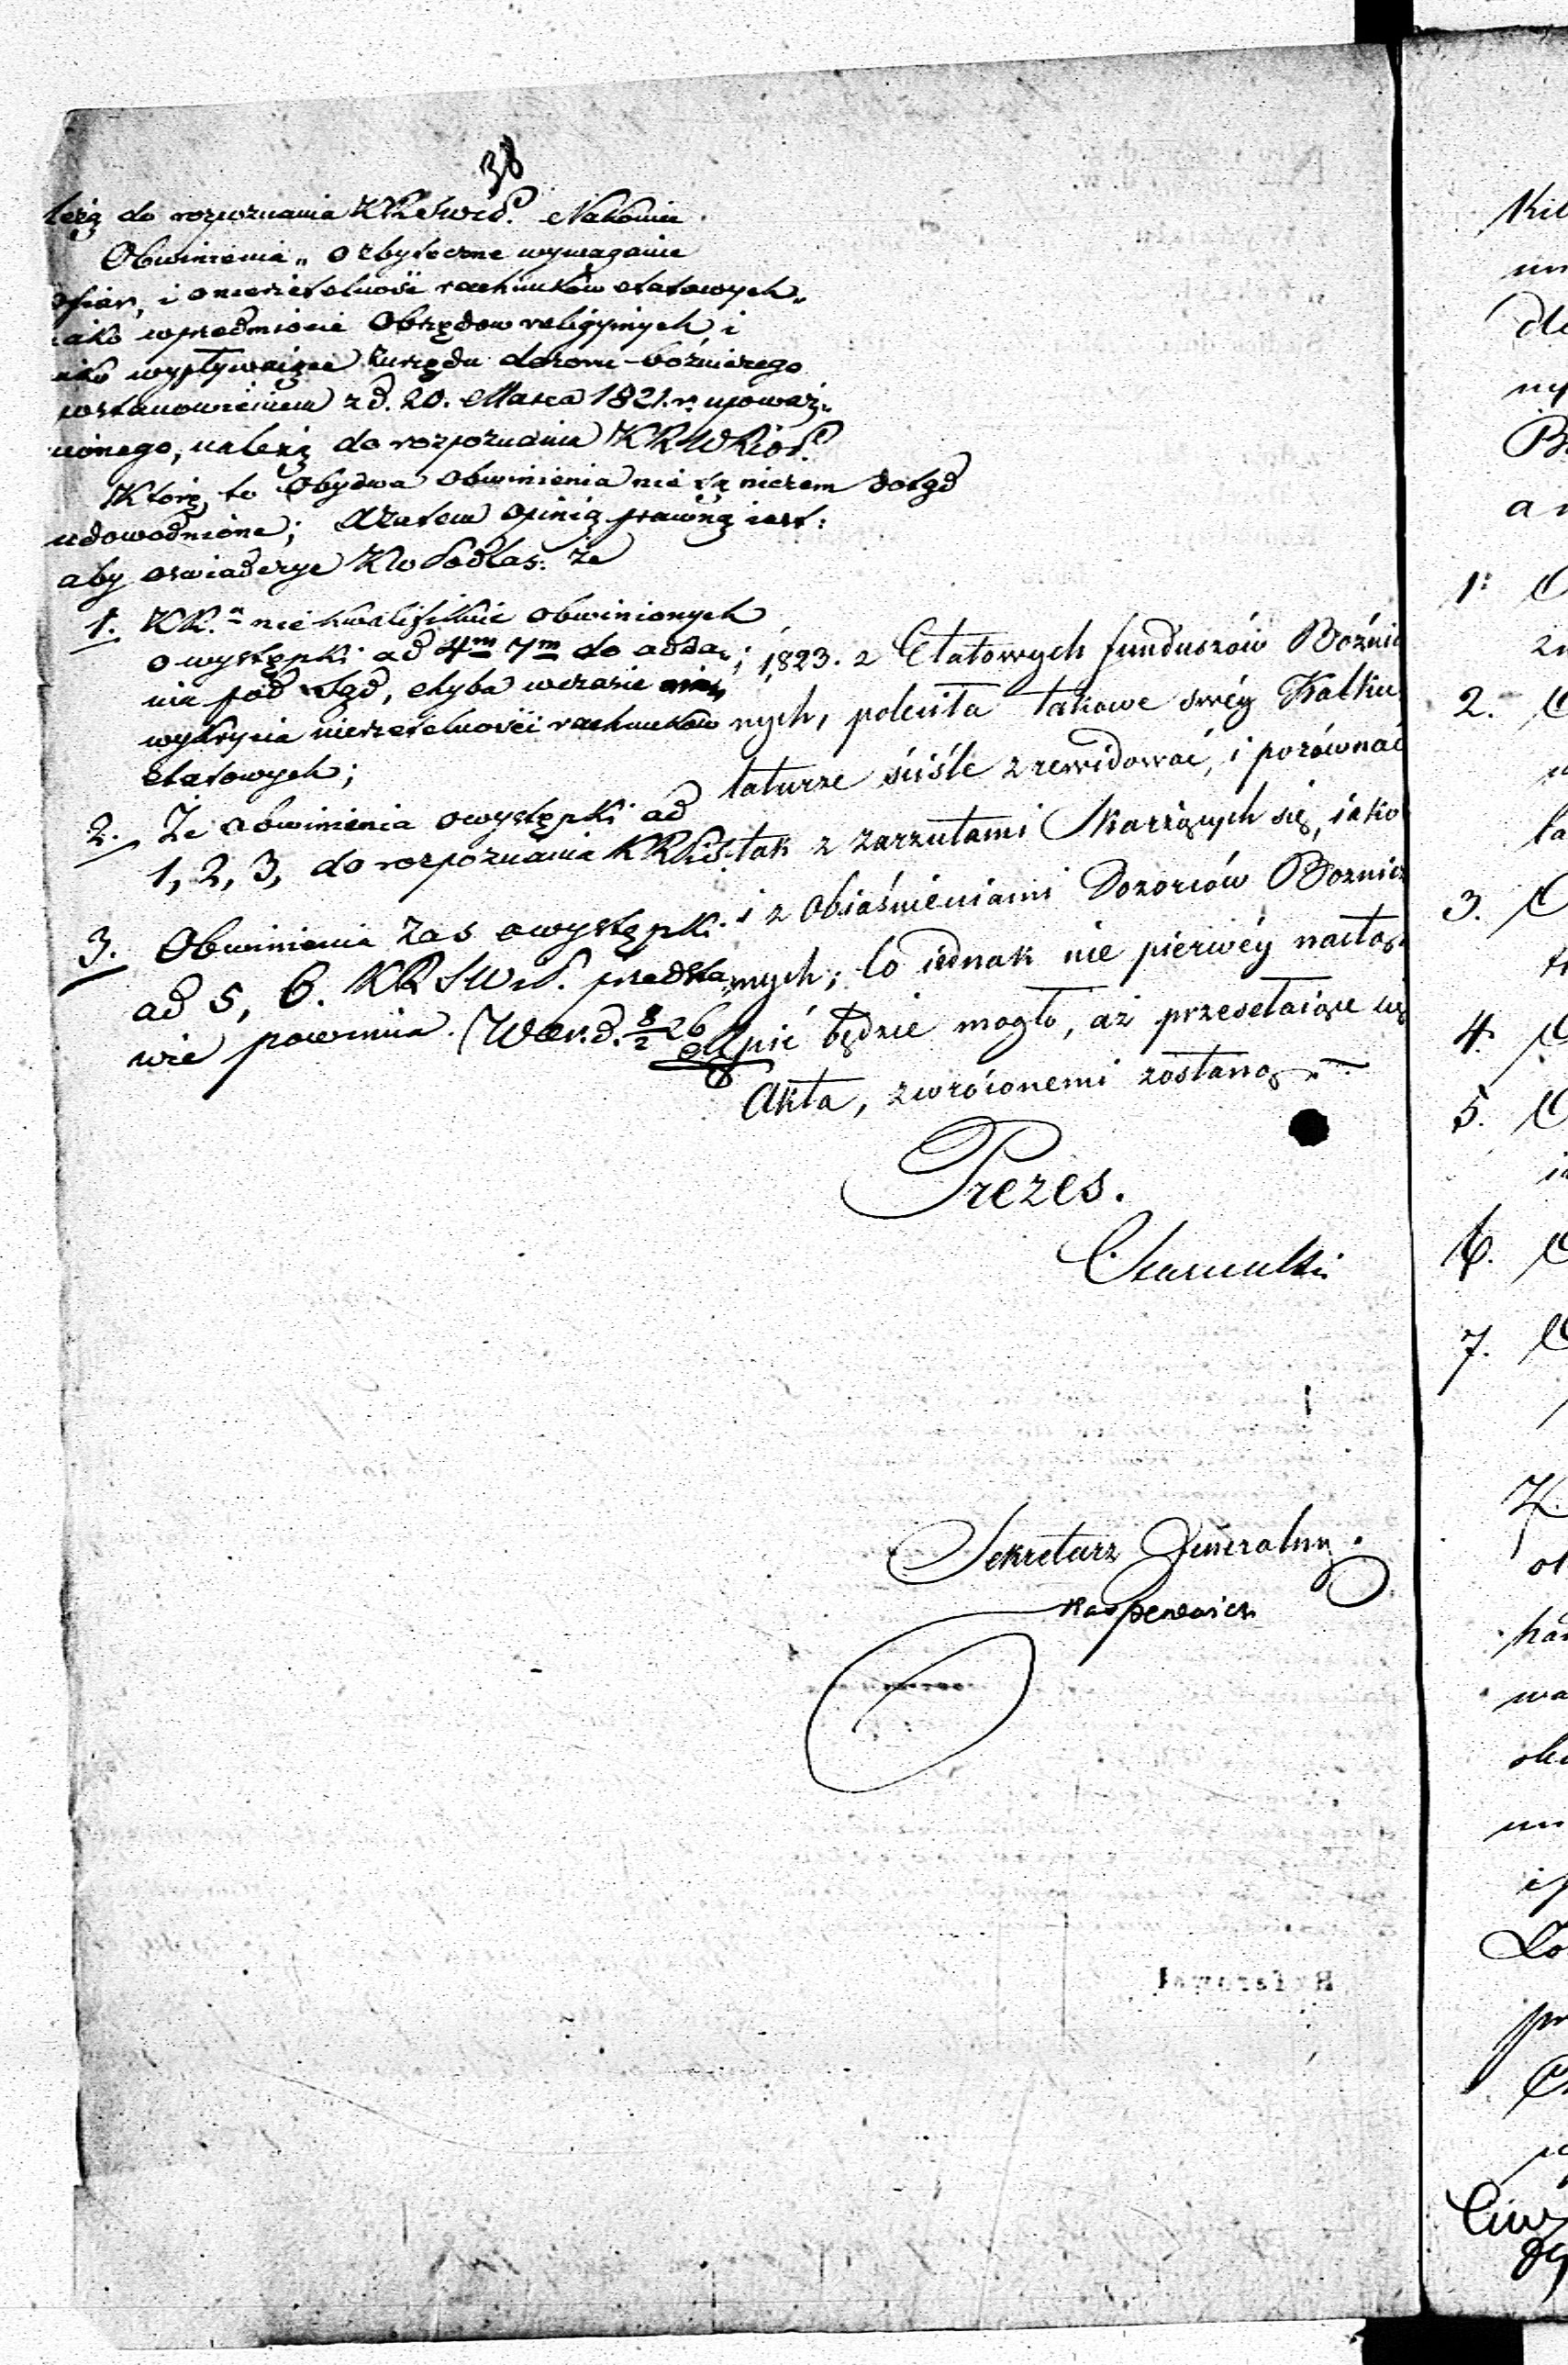 38
leżą do rozpoznania KRSWiP. Nakoniec
Obwinienia „ o zbyteczne wymaganie
ofiar, i o nierzetelność rachunków etatowych „
iako w przedmiocie Obrzędow religyinych i
iako wypływaiące z urzędu dozoru bóżniczego
postanowieniem z d. 20. Marca 1821. r. upoważ-
nionego, należą do rozpoznania KRWRiOP.
Które to Obydwa obwinienia nie są niczem dotąd
udowodnione; A zatem opinią prawną iest:
aby oswiadczyć KW Podlas: że
1. KR.a nie kwalifikuie obwinionych
o występki ad 4m 7m do odda-
nia pod Sąd, chyba w czasie
wykrycia nierzetelności rachunków
etatowych;
2. Że obwinienia o występki ad
1, 2, 3, do rozpoznania
3. Obwinienia zas o występki
ad 5, 6. KRSWiP. przedsta-
wie powinna. (War. d. 8/2 26
1823. z Etatowych funduszów Bóźni
nych, poleciła takowe swéy Kalku
laturze ściśle zrewidować, i porównać
tak z zarzutami Skarżących się, iako
i z Obiaśnieniami Dozorców Boznic
nych; co iednak nie pierwéy nastą
pić będzie mogło, aż przesełaiące się
Akta, zwróconemi zostaną
Prezes.
Sekretarz Jeneralny.
Kit
de
B
a
1:
2.
3.
4.
5.
6.
7.